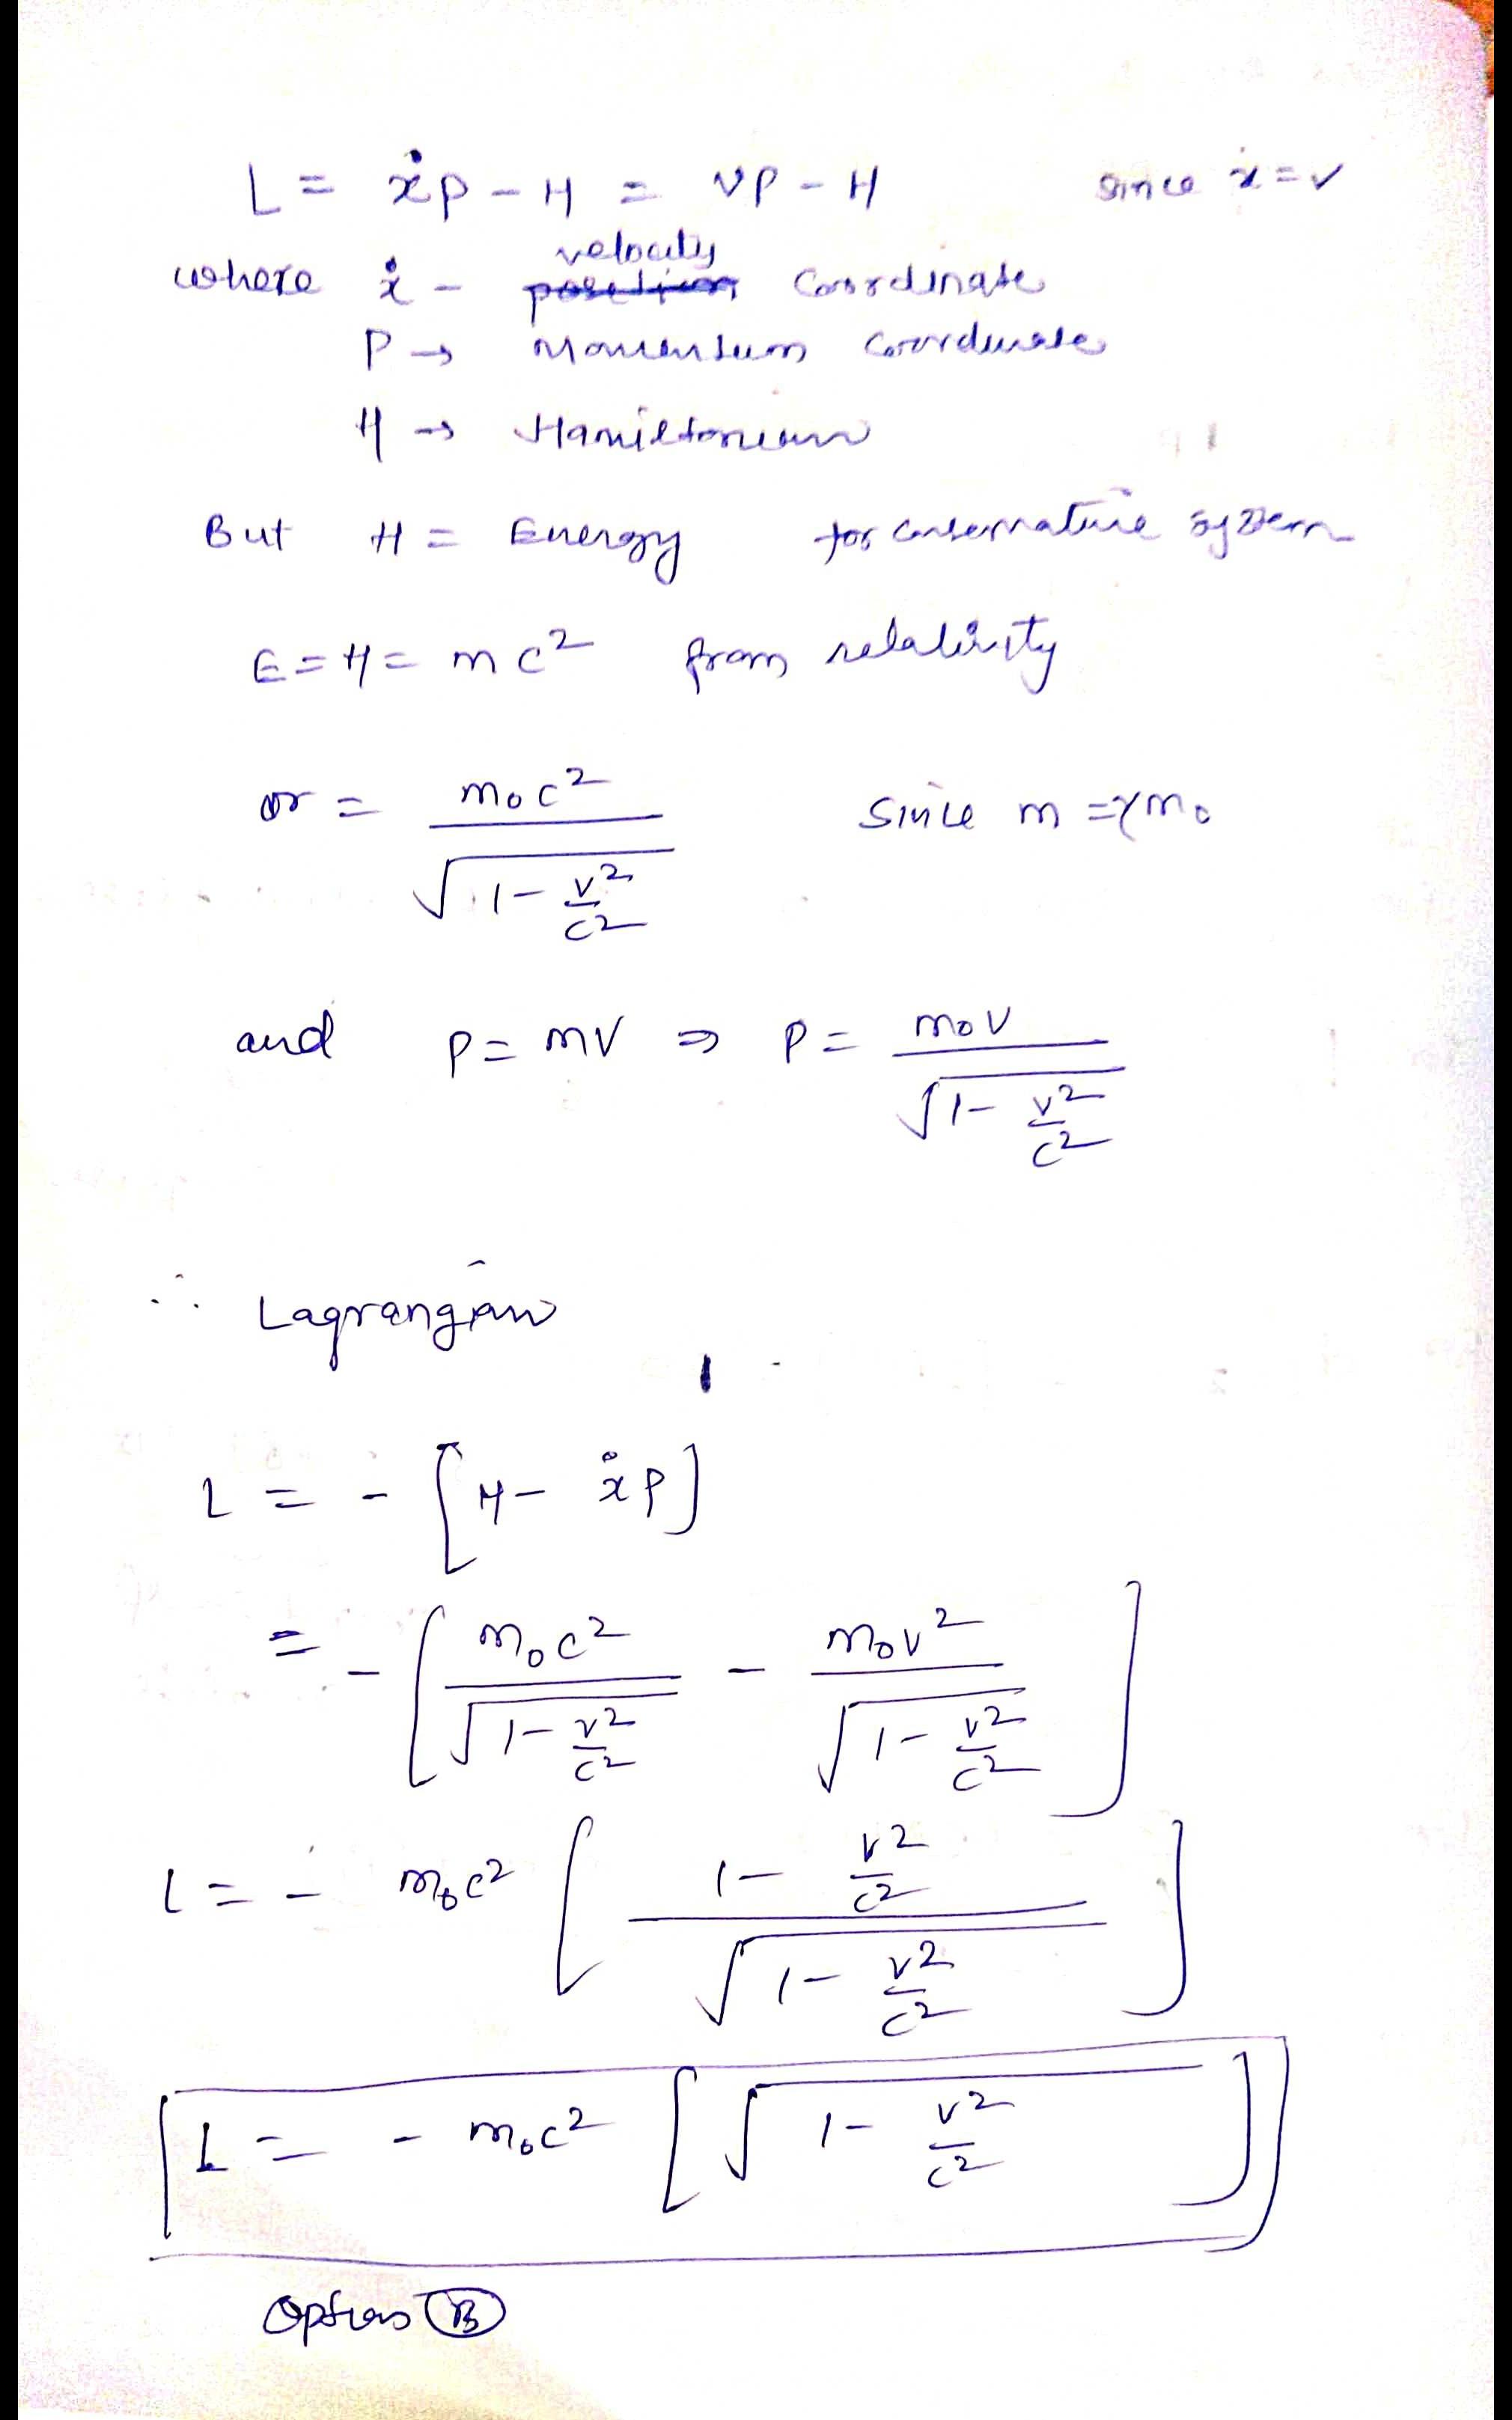 L = ẋp - H = vp - H since ẋ = v
where ẋ - velocity coordinate
P → Momentum coordinate
H → Hamiltonian
But H = Energy for conservative system
E = H = mc²  from relativity
or = m₀c² / √(1 - v²/c²) since m = γm₀
and p = mv ⇒ p = m₀v / √(1 - v²/c²)
∴ Lagrangian
L = - [H - ẋp]
= - [m₀c² / √(1 - v²/c²) - m₀v² / √(1 - v²/c²)]
L = - m₀c² [(1 - v²/c²) / √(1 - v²/c²)]
L = - m₀c² [√(1 - v²/c²)]
Option B